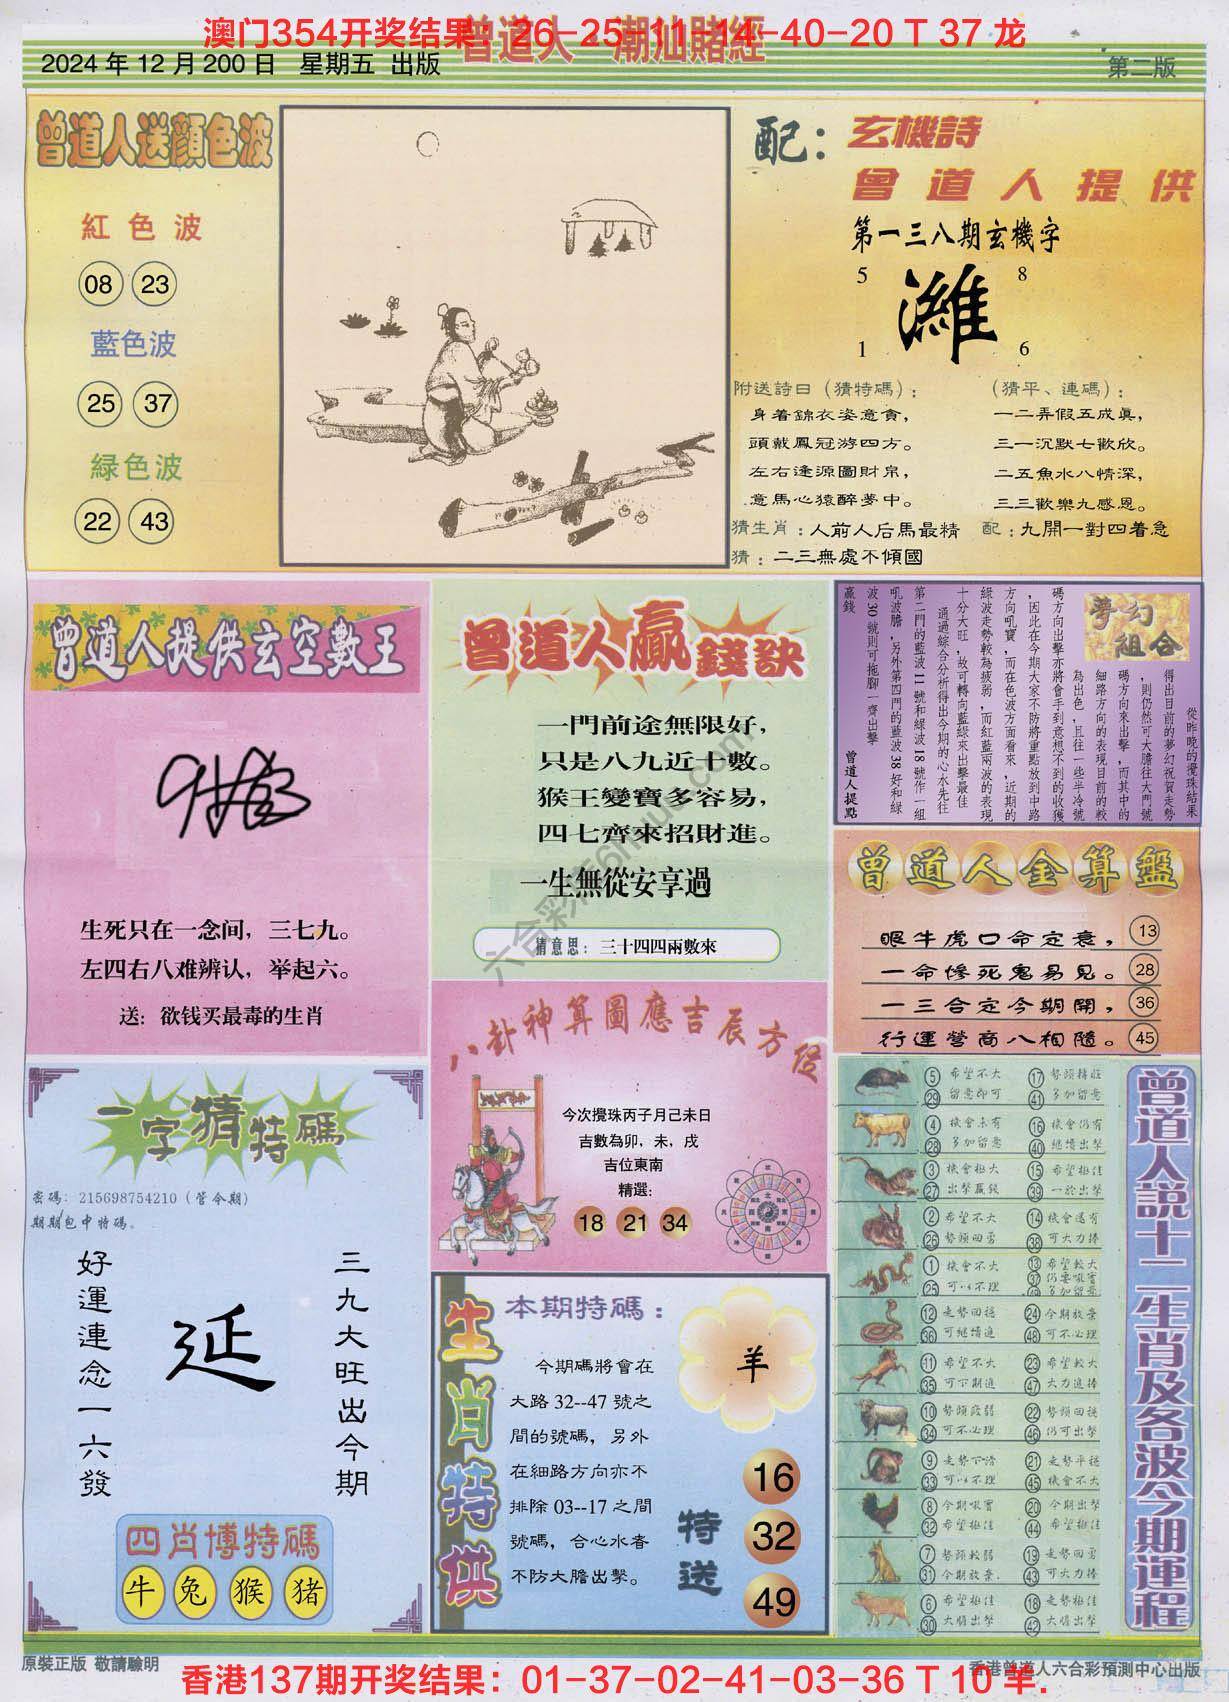 澳门354开奖结果：26-25-11-14-40-20 T 37 龙
曾道人 潮汕賭經
2024年12月200日 星期五 出版
第二版
曾道人送顔色波
紅色波
08 23
藍色波
25 37
緑色波
22 43
配：玄機詩
曾道人提供
第一三八期玄機字
5 8
濰
1 6
附送詩曰（猜特碼）：
身着錦衣姿意貪，
頭戴鳳冠游四方。
左右逢源圖財帛，
意馬心猿醉夢中。
（猜平、連碼）：
一二弄假五成真，
三一沉默七歡欣。
二五魚水八情深，
三三歡樂九感恩。
猜生肖：人前人后馬最精 配：九開一對四着急
猜：二三無處不傾國
曾道人提供玄空數王
生死只在一念间，三七九。
左四右八难辨认，举起六。
送：欲钱买最毒的生肖
曾道人贏錢訣
一門前途無限好，
只是八九近十數。
猴王變寶多容易，
四七齊來招財進。
一生無從安享過
猜意思：三十四四兩數來
六合彩
夢幻組合
從昨晚的攪珠結果
得出目前的夢幻祝賀走勢
，則仍然可大膽往大門號
碼方向來出擊，而其中的
細路方向的表現目前的較
為出色，且往一些半冷號
碼方向出擊亦將會手到意想不到的收獲
，因此在今期大家不防將重點放到中路
方向吼寶，而在色波方面看來，近期的
綠波走勢較為疲弱，而紅藍兩波的表現
十分大旺，故可轉向藍綠來出擊最佳
通過綜合分析得出今期的心水先往
第二門的藍波11號和綠波18號作一組
吼波膽，另外第四門的藍波38好和綠
波30號則可拖腳一齊出擊
贏錢 曾道人提點
曾道人金算盤
眼牛虎口命定衰， 13
一命慘死鬼易見。 28
一三合定今期開， 36
行運營商八相隨。 45
八卦神算圖應吉辰方位
今次攪珠丙子月己未日
吉數為卯，未，戌
吉位東南
精選：
18 21 34
一字猜特碼
密碼：215698754210（管今期）
期期包中特碼。
三九大旺出今期
延
好運連念一六發
四肖博特碼
牛 兔 猴 猪
生肖特供
本期特碼：
羊
今期碼將會在
大路32--47號之
間的號碼，另外
在細路方向亦不
排除03--17之間
號碼，合心水者
不防大膽出擊。
特送
16
32
49
曾道人説十二生肖及各波今期運程
5 希望不大 17 勢頭轉旺
29 留意即可 41 多加留意
4 機會未有 16 機會仍有
28 多加留意 40 繼續出擊
3 機會極大 15 希望極佳
27 出擊贏錢 39 一於出擊
2 希望不大 14 機會還有
26 勢頭回勇 38 可大力捧
1 機會不大 13 希望較大
25 可以不理 37 仍要吼實
多加留意
12 走勢回穩 24 今期放棄
36 可繼續進 48 可不必理
11 希望不大 23 希望較大
35 可下期進 47 大力進捧
10 勢頭疲弱 22 勢頭回穩
34 可不必理 46 仍可出擊
9 走勢下滑 21 走勢平穩
33 可以不理 45 機會不大
8 今期吼實 20 今期出擊
32 希望極佳 44 希望極佳
7 勢頭較弱 19 走勢回勇
31 今期放棄. 43 可大力捧
6 希望極佳 18 走勢極佳
30 大膽出擊 42 大膽出擊
原裝正版 敬請驗明
香港曾道人六合彩預測中心出版
香港137期开奖结果：01-37-02-41-03-36 T 10 羊.